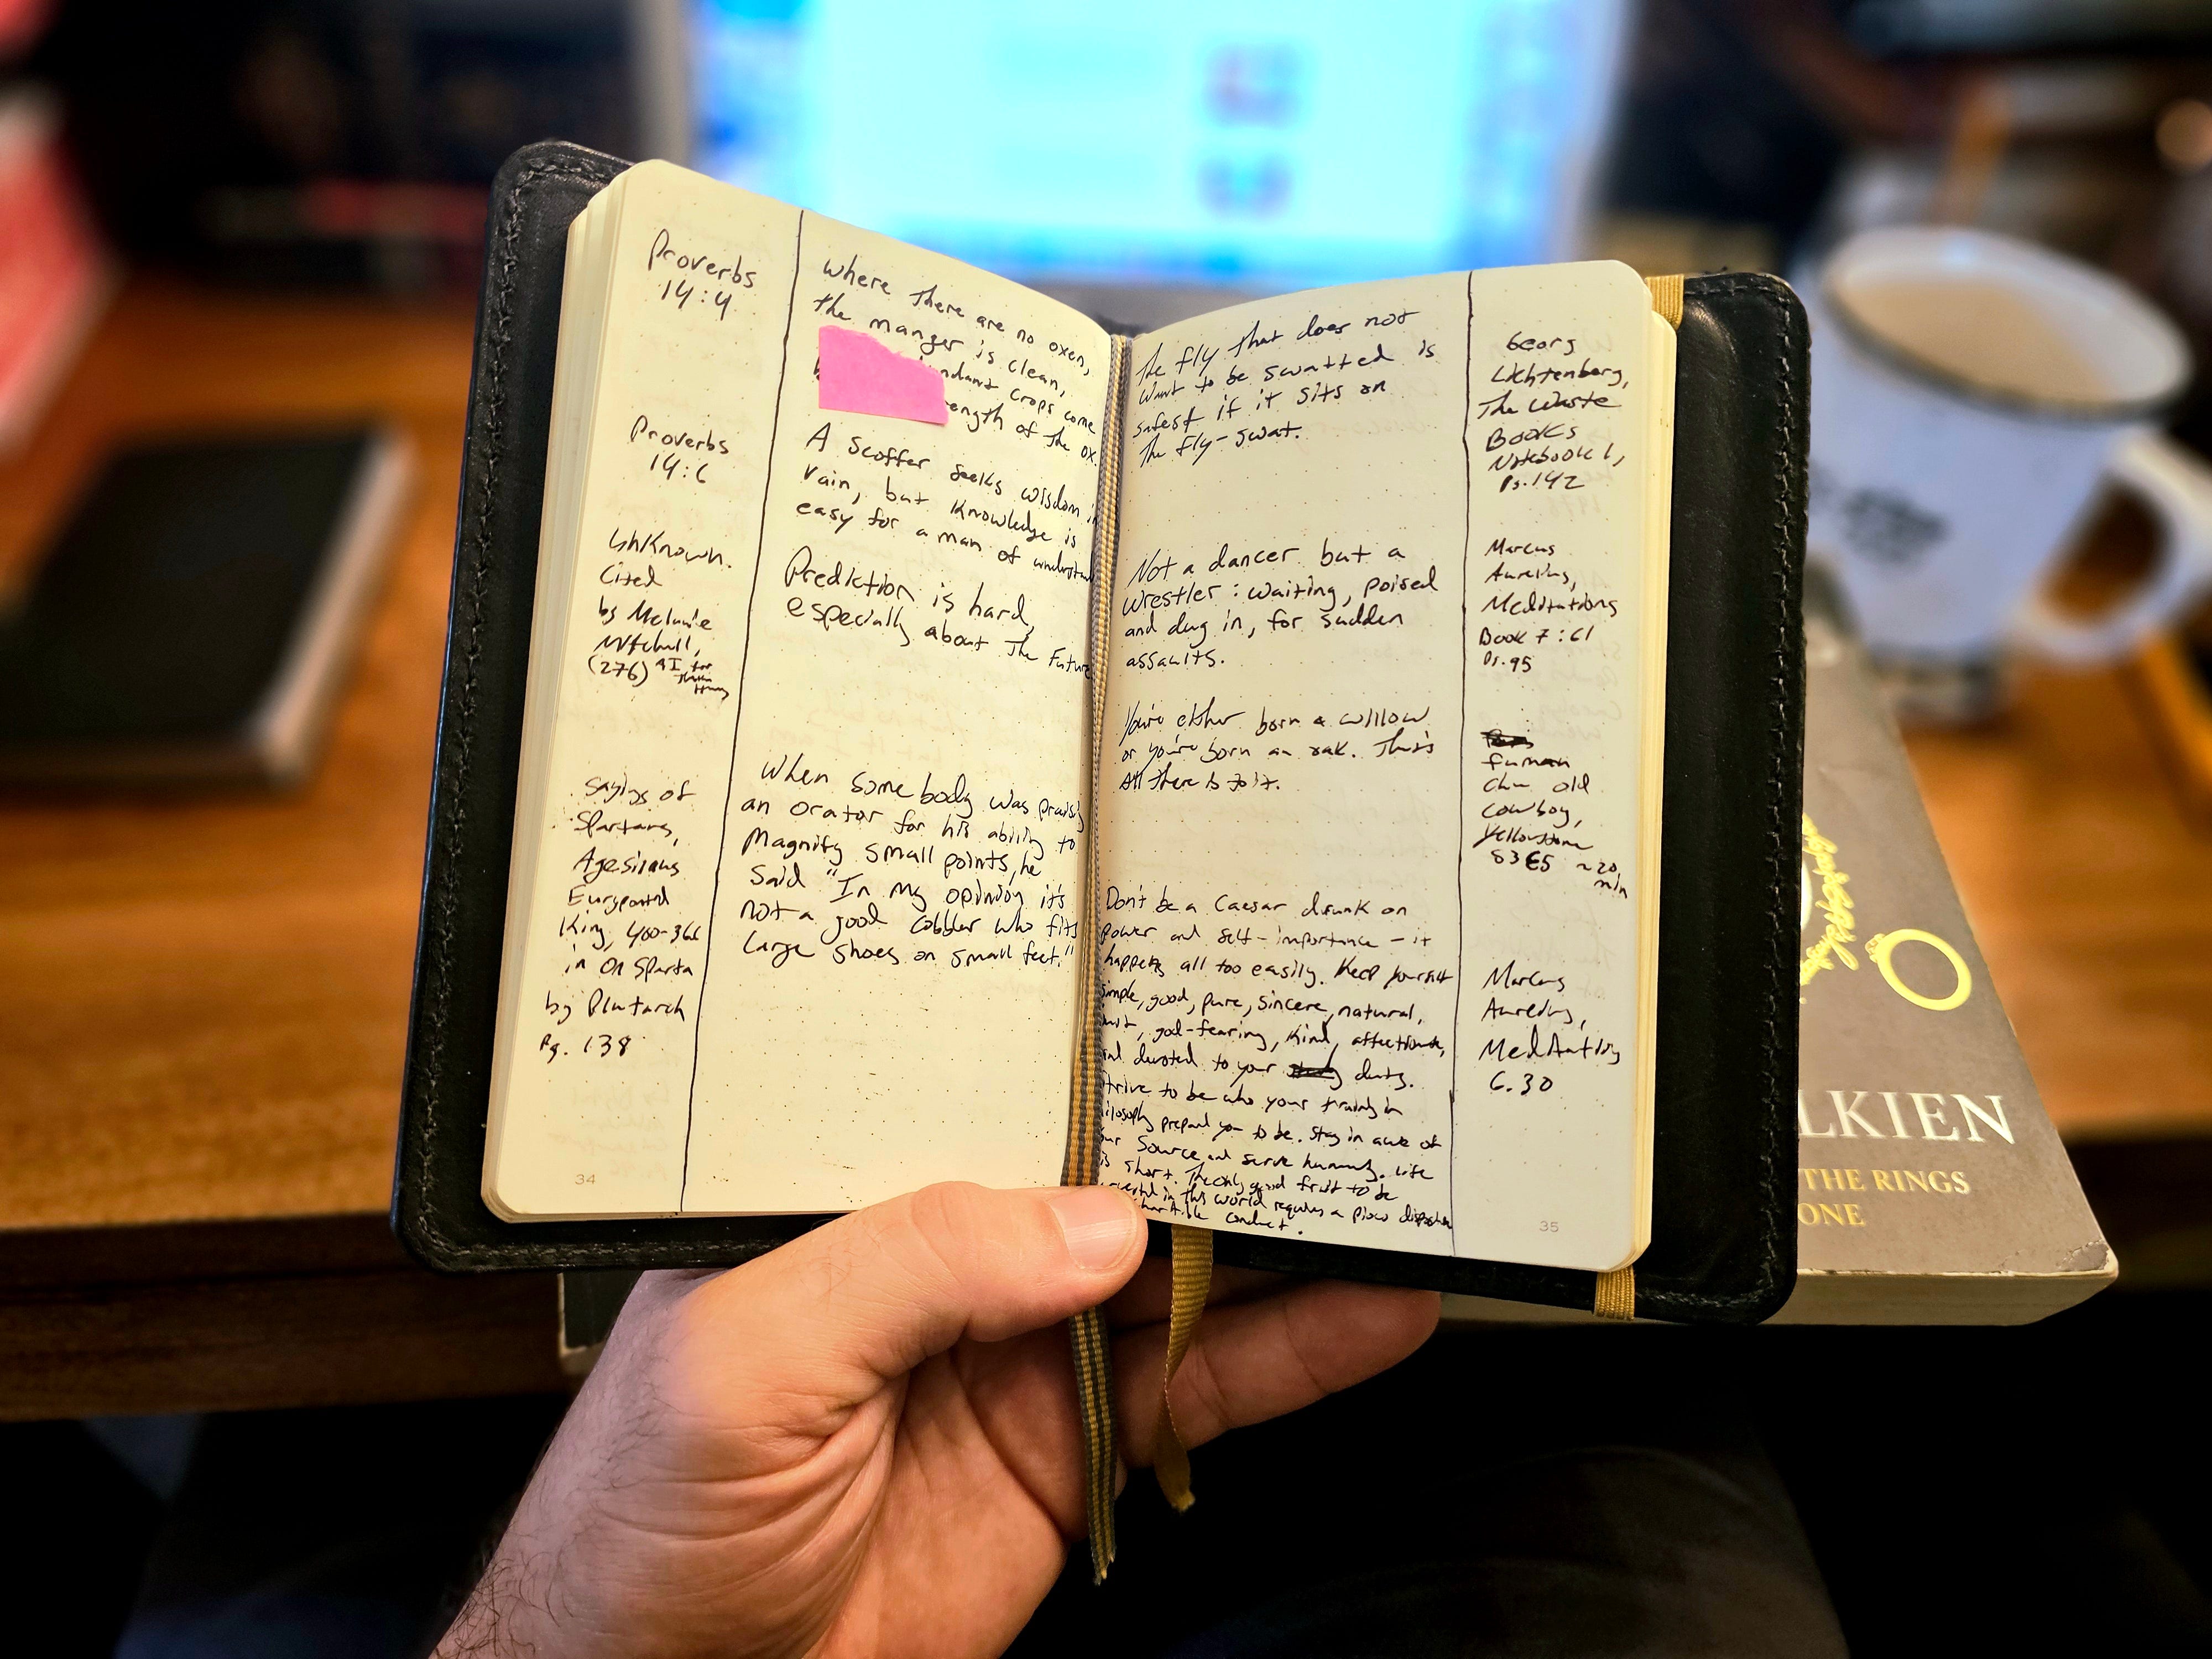 Proverbs
14:4
where there are no oxen,
the manger is clean,
crops come
of the ox.
Proverbs
14:6
A scoffer seeks wisdom in
vain, but knowledge is
easy for a man of
Unknown.
Cited
by Melanie
Mitchell,
(276) AI for
Prediction is hard,
especially about the Future
Sayings of
Spartans,
Agesilaus
King, 400-360
in On Sparta
by Plutarch
Pg. 138
When somebody was
an orator for his ability to
Magnify small points, he
said "In my opinion it's
not a good cobbler who fits
large shoes on small feet."
34
The fly that does not
want to be swatted is
safest if it sits on
the fly-swat.
Georg
Lichtenberg,
The Waste
Books
Notebook L,
Pg. 142
Not a dancer but a
wrestler: waiting, poised
and dug in, for sudden
assaults.
Marcus
Aurelius,
Meditations
Book 7:61
Pg. 95
You're either born a willow
or you're born an oak. That's
All there is to it.
old
cowboy,
Yellowstone
S3E5 ~20
min
Don't be a Caesar drunk on
power and self-importance - it
happens all too easily. Keep yourself
simple, good, pure, sincere, natural,
god-fearing, kind, affectionate,
devoted to your duty.
strive to be who your training in
philosophy prepared you to be. Stay in awe of
Source and serve humanity. Life
is short. The only good fruit to be
in this world requires a pious disposition
charitable conduct.
Marcus
Aurelius,
Meditations
6.30
35
LKIEN
THE RINGS
ONE